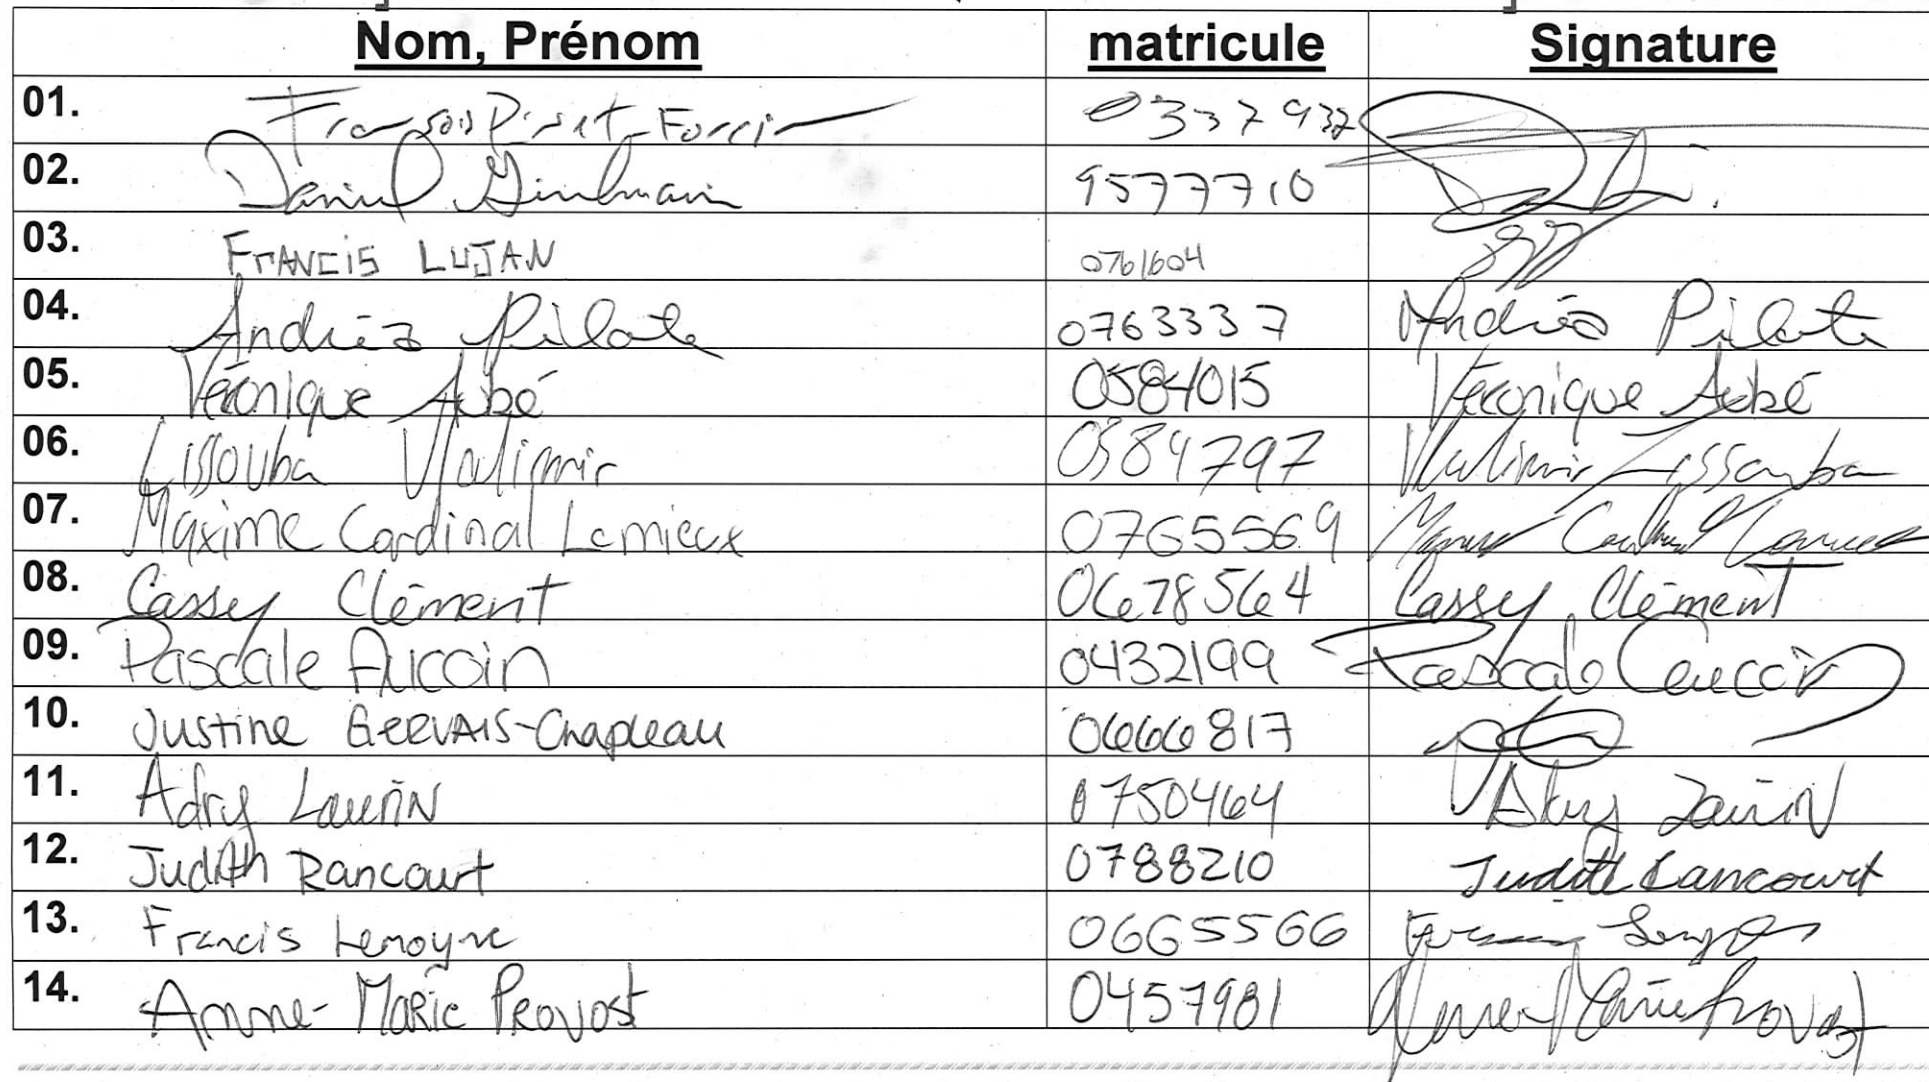 Nom, Prénom matricule Signature
01. François Pinet-Forcier 0337932
02. Daniel 9577710
03. Francis LUJAN 0761604
04. Andréa Pilote 0763337 Andréa Pilote
05. Véronique Aubé 0584015 Véronique Aubé
06. Lissouba Vladimir 0584797 Vladimir Lissouba
07. Maxime Cardinal Lemieux 0765569
08. Cassey Clément 0678564 Cassey Clément
09. Pascale Aucoin 0432199 Pascale Aucoin
10. Justine GERVAIS-Chapleau 0666817
11. Adry Laurin 0750464 Adry Laurin
12. Judith Rancourt 0788210 Judith Rancourt
13. Francis Lemoyne 0665566
14. Anne-Marie Provost 0457981 Anne-Marie Provost